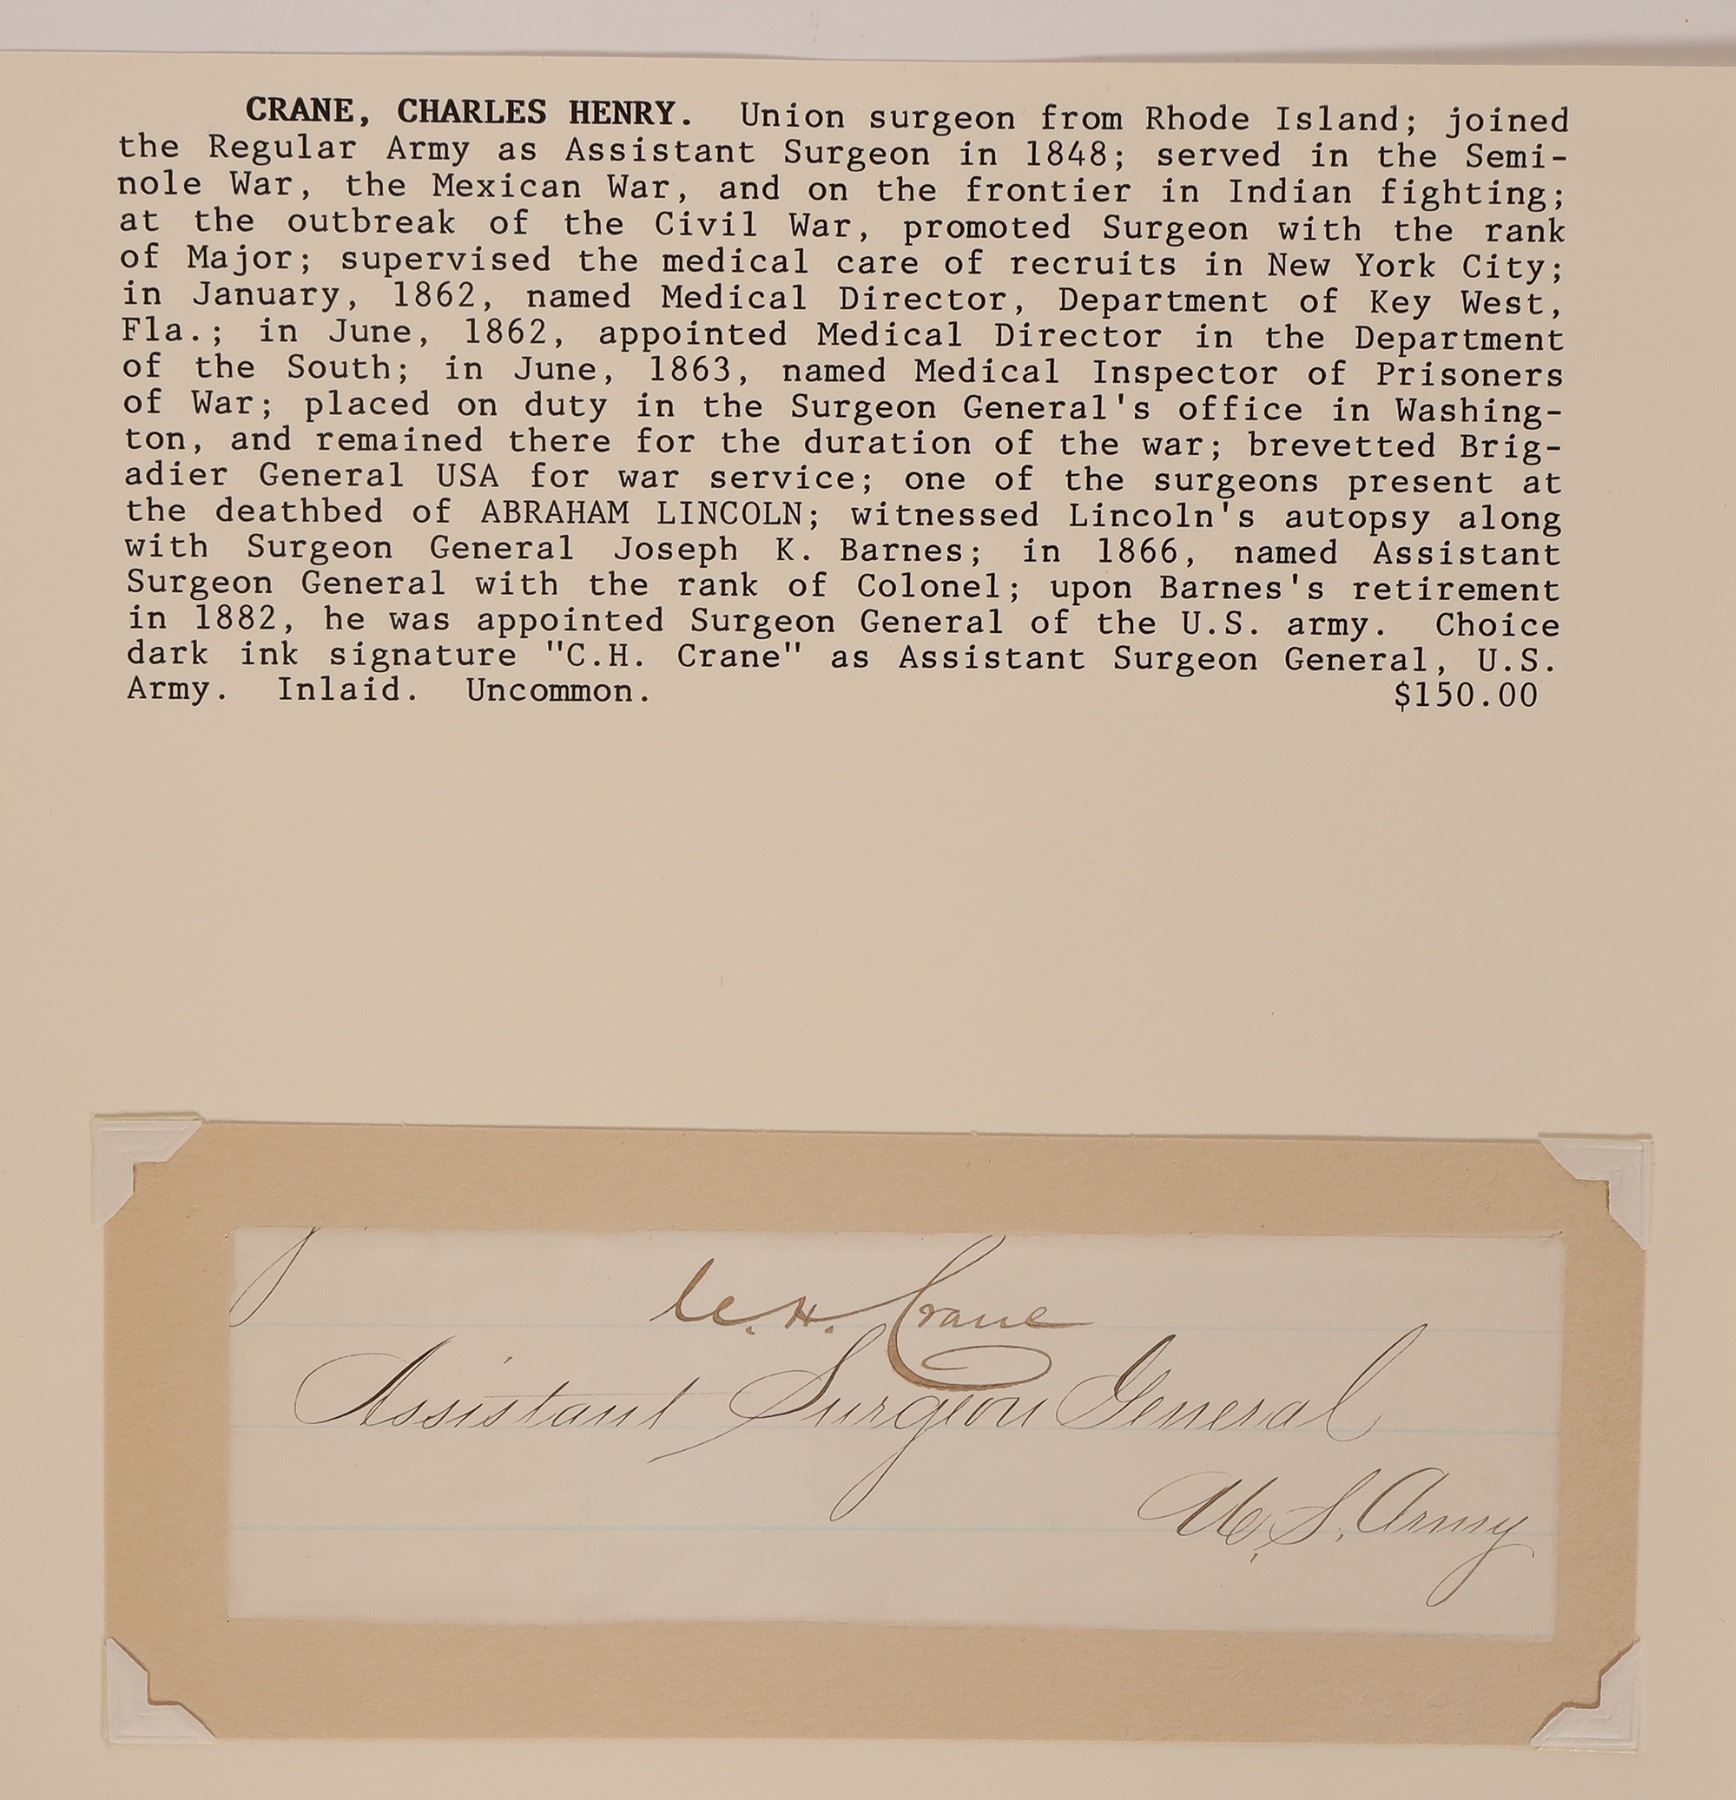 CRANE, CHARLES HENRY. Union surgeon from Rhode Island; joined
the Regular Army as Assistant Surgeon in 1848; served in the Semi-
nole War, the Mexican War, and on the frontier in Indian fighting;
at the outbreak of the Civil War, promoted Surgeon with the rank
of Major; supervised the medical care of recruits in New York City;
in January, 1862, named Medical Director, Department of Key West,
Fla.; in June, 1862, appointed Medical Director in the Department
of the South; in June, 1863, named Medical Inspector of Prisoners
of War; placed on duty in the Surgeon General's office in Washing-
ton, and remained there for the duration of the war; brevetted Brig-
adier General USA for war service; one of the surgeons present at
the deathbed of ABRAHAM LINCOLN; witnessed Lincoln's autopsy along
with Surgeon General Joseph K. Barnes; in 1866, named Assistant
Surgeon General with the rank of Colonel; upon Barnes's retirement
in 1882, he was appointed Surgeon General of the U.S. army. Choice
dark ink signature "C.H. Crane" as Assistant Surgeon General, U.S.
Army. Inlaid. Uncommon. $150.00
C. H. Crane
Assistant Surgeon General
U. S. Army